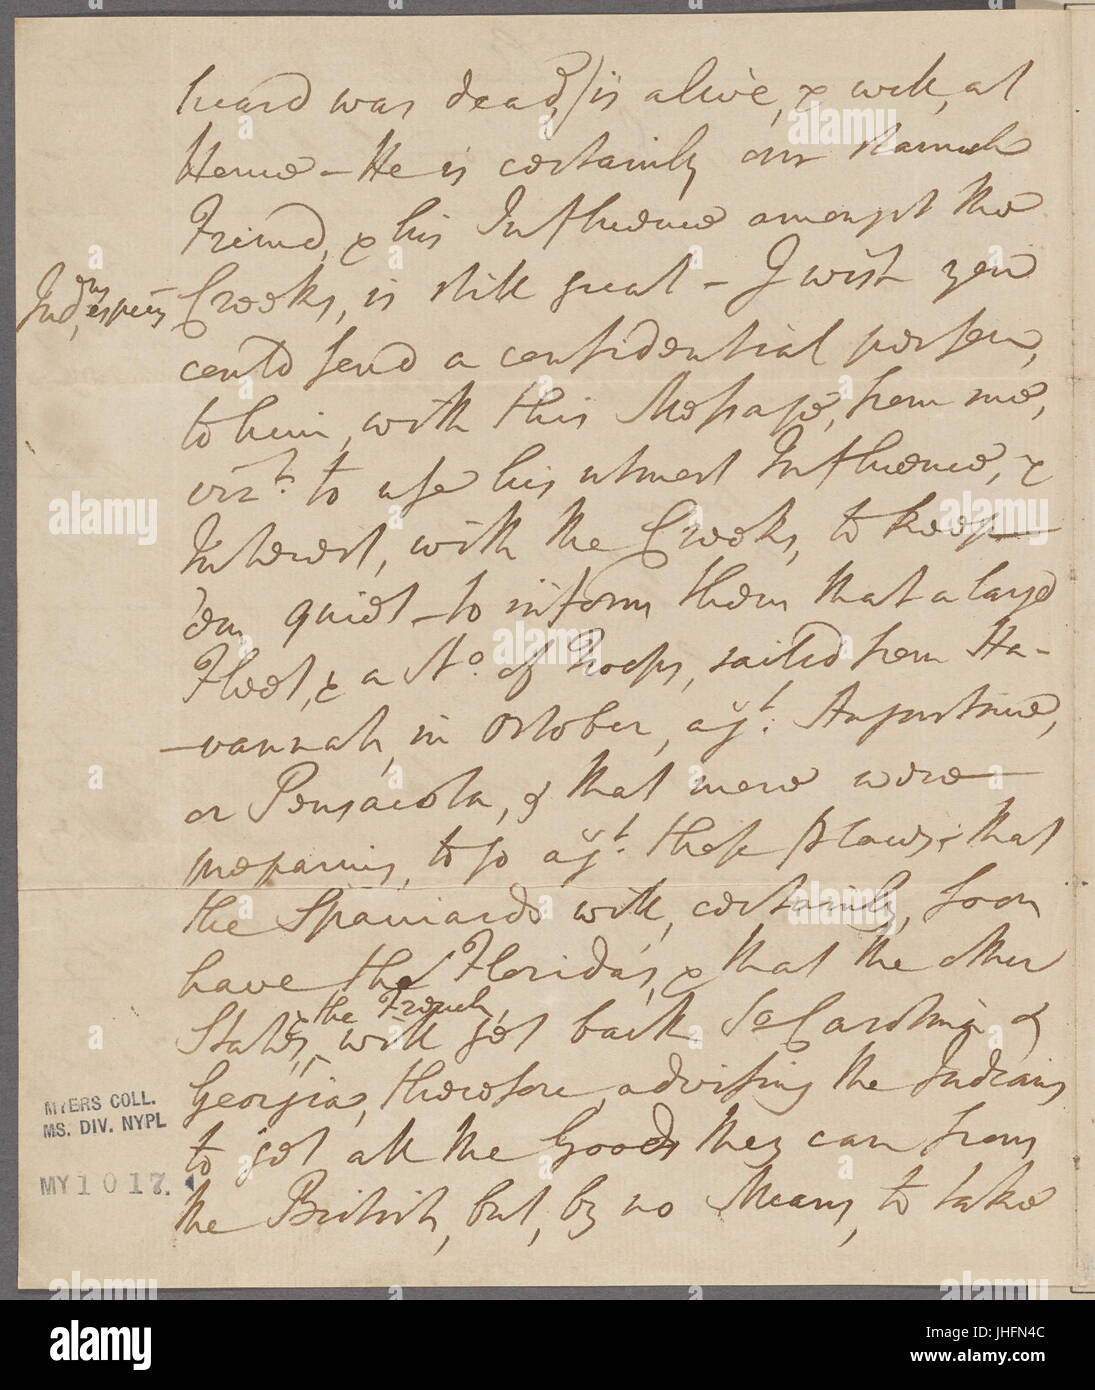 heard was dead,) is alive, & well, at
Home – He is certainly our stanch
Friend, & his Influence amongst the
Creeks, is still great – I wish you
could send a confidential person,
to him, with this Message, from me,
vizt. to use his utmost Influence, &
Interest, with the Creeks, to keep
'em quiet – to inform them that a large
Fleet, & a No. of Troops, sailed from Ha-
-vannah, in October, agt. Augustine,
or Pensacola, & that more were
preparing, to go agt. those places; that
the Spaniards will, certainly, soon
have the Floridas, & that the other
States, & the French, will get back So Carolina &
Georgia, therefore, advising the Indians
to get all the Goods they can from
the British, but, by no Means, to take
MYERS COLL.
MS. DIV. NYPL
MY 10 17.
alamy stock photo
a
alamy
Image ID: JHFN4C
www.alamy.com